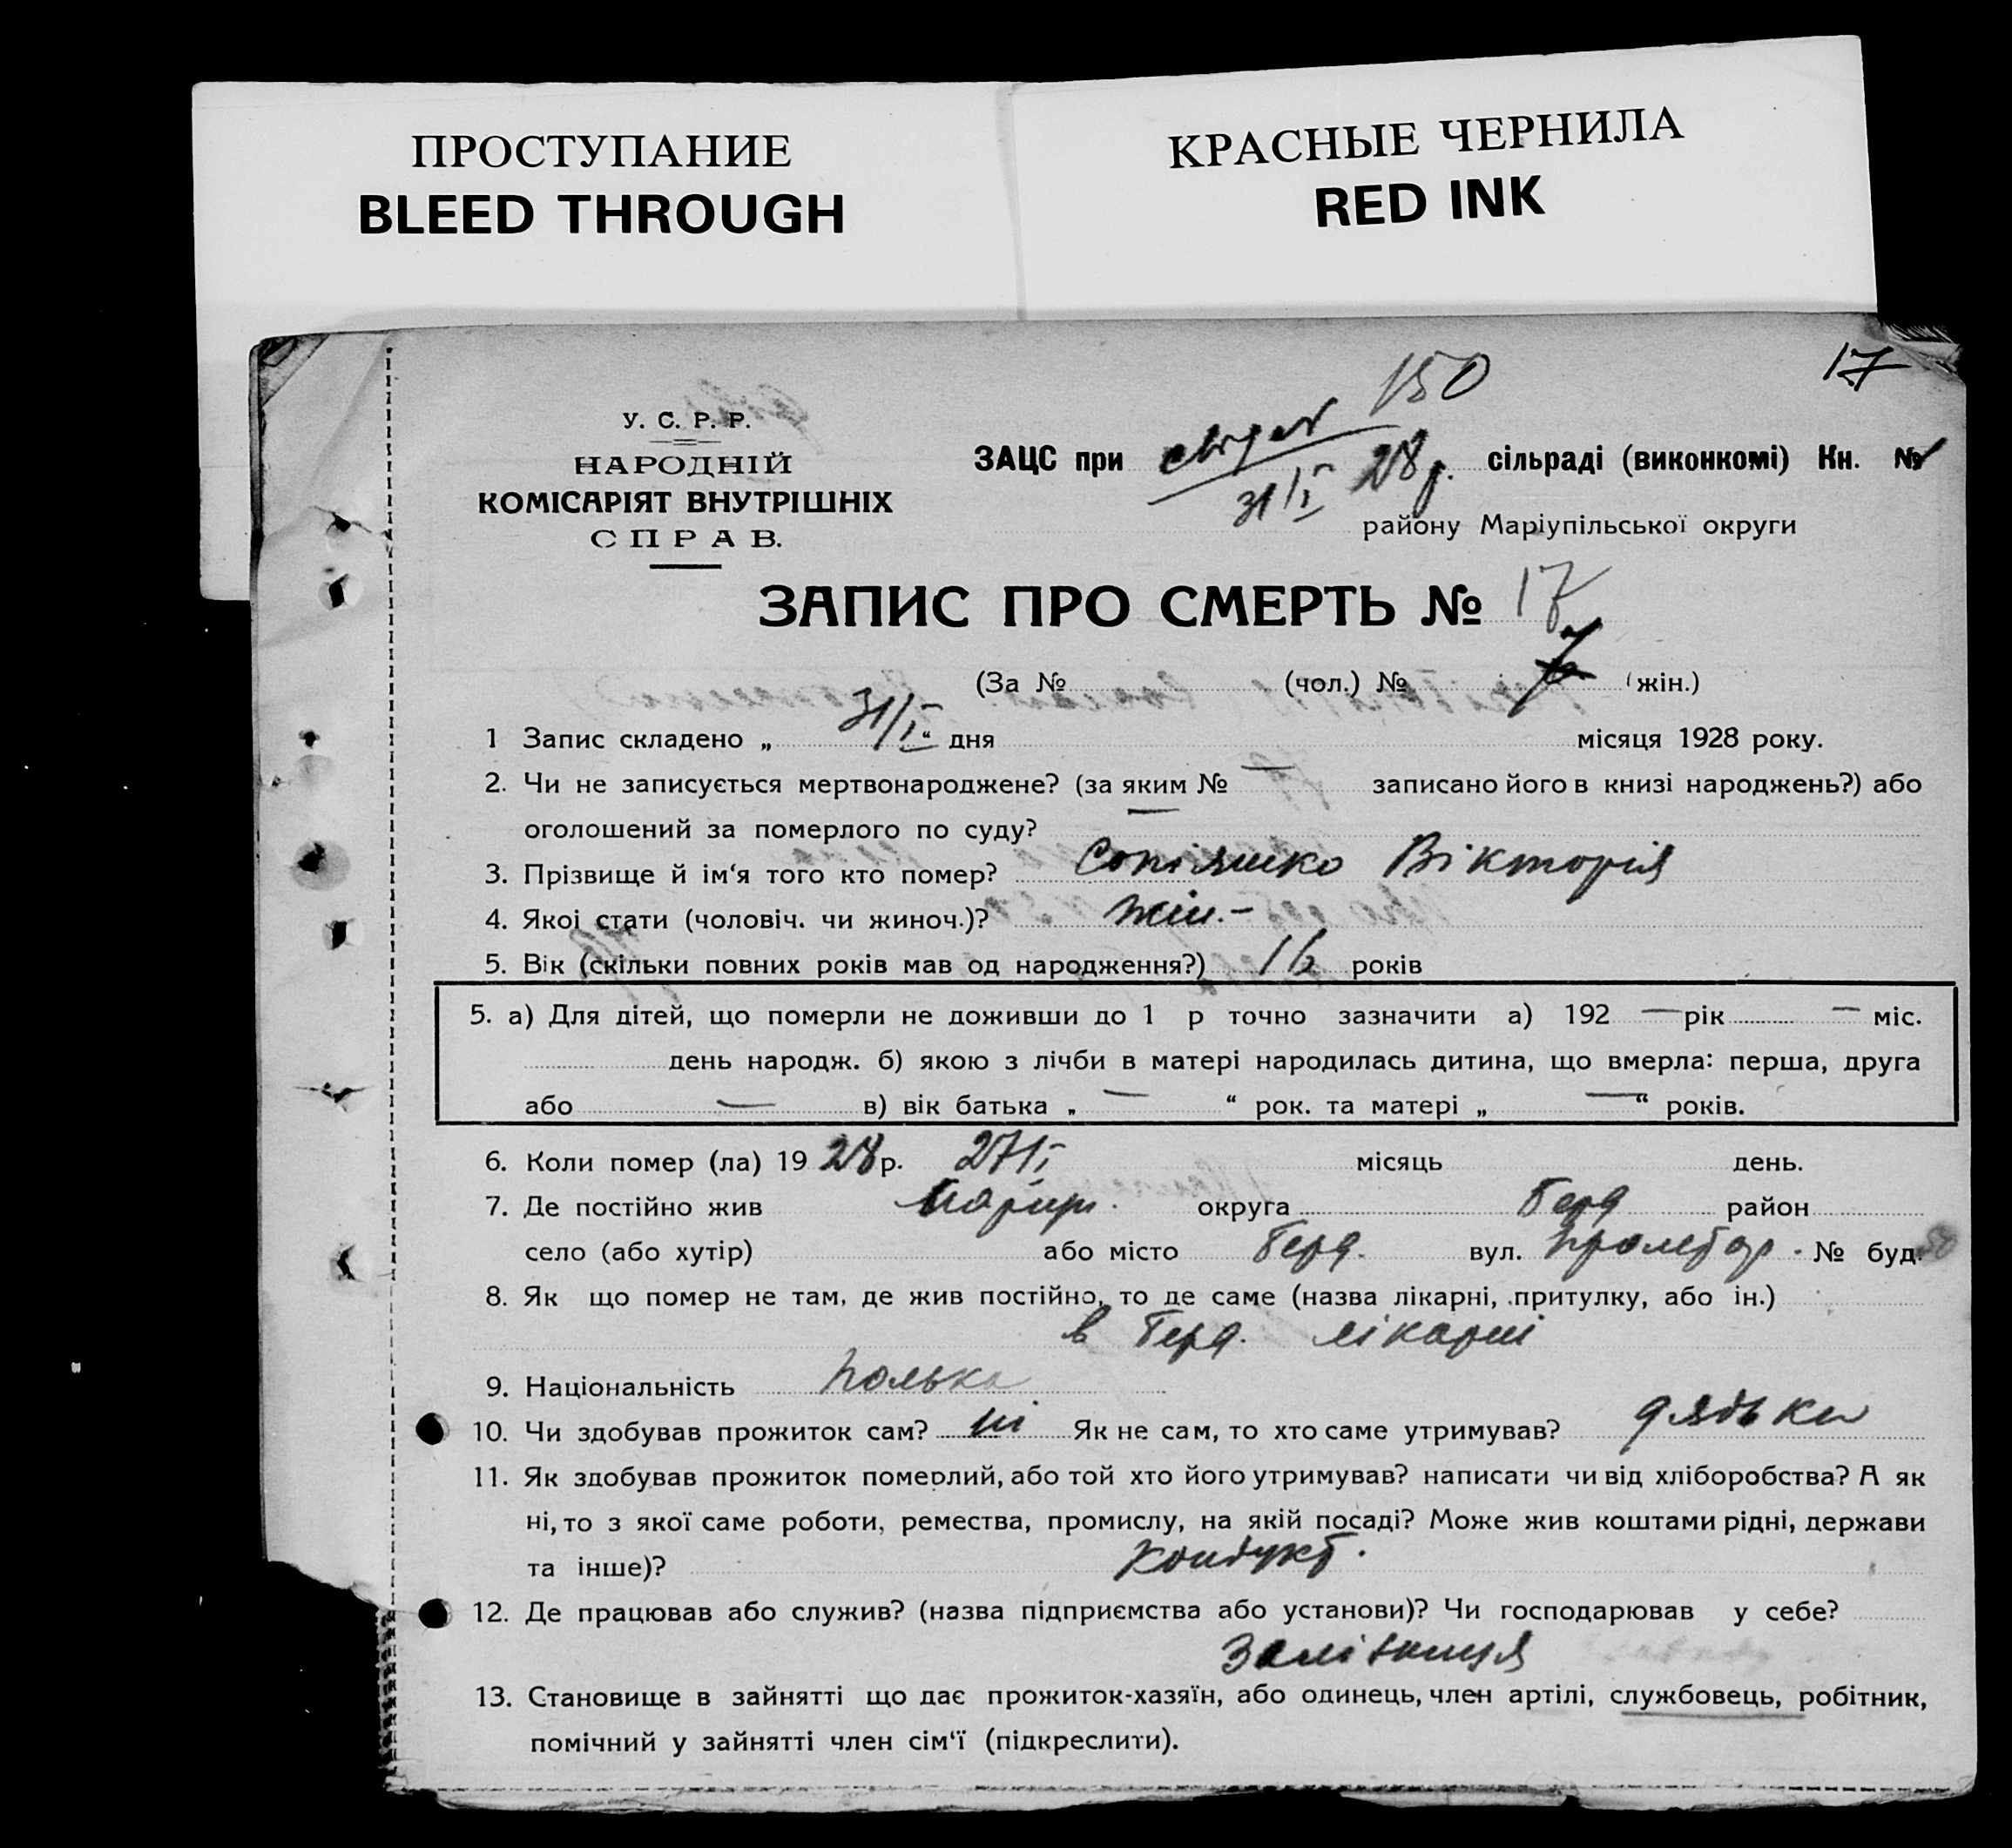 ПРОСТУПАНИЕ
BLEED THROUGH
КРАСНЫЕ ЧЕРНИЛА
RED INK
17
150
У. С. Р. Р.
НАРОДНІЙ
КОМІСАРІЯТ ВНУТРІШНІХ
СПРАВ.
ЗАЦС при сільраді (виконкомі) Кн. №
31/I 28 р.
району Маріупільської округи
ЗАПИС ПРО СМЕРТЬ № 17
(За № (чол.) № 7 (жін.)
1 Запис складено „ 31/I “ дня місяця 1928 року.
2. Чи не записується мертвонароджене? (за яким № — записано його в книзі народжень?) або
оголошений за померлого по суду? —
3. Прізвище й ім‘я того кто помер? Вікторія
4. Якоі стати (чоловіч. чи жиноч.)? жін. –
5. Вік (скільки повних років мав од народження?) 1½ років
5. а) Для дітей, що померли не доживши до 1 р точно зазначити а) 192 — рік — міс.
день народж. б) якою з лічби в матері народилась дитина, що вмерла: перша, друга
або — в) вік батька „ — “ рок. та матері „ — “ років.
6. Коли помер (ла) 19 28 р. 27/I місяць день.
7. Де постійно жив Маріуп. округа Берд район
село (або хутір) або місто Берд. вул. Пролетар. № буд.
8. Як що помер не там, де жив постійно, то де саме (назва лікарні, притулку, або ін.)
в Берд. лікарні
9. Національність Полька
10. Чи здобував прожиток сам? ні Як не сам, то хто саме утримував? дядько
11. Як здобував прожиток померлий, або той хто його утримував? написати чи від хліборобства? А як
ні, то з якої саме роботи, ремества, промислу, на якій посаді? Може жив коштами рідні, держави
та інше)? Кондукт.
12. Де працював або служив? (назва підприємства або установи)? Чи господарював у себе?
Залізниця
13. Становище в зайнятті що дає прожиток-хазяїн, або одинець, член артілі, службовець, робітник,
помічний у зайнятті член сім‘ї (підкреслити).